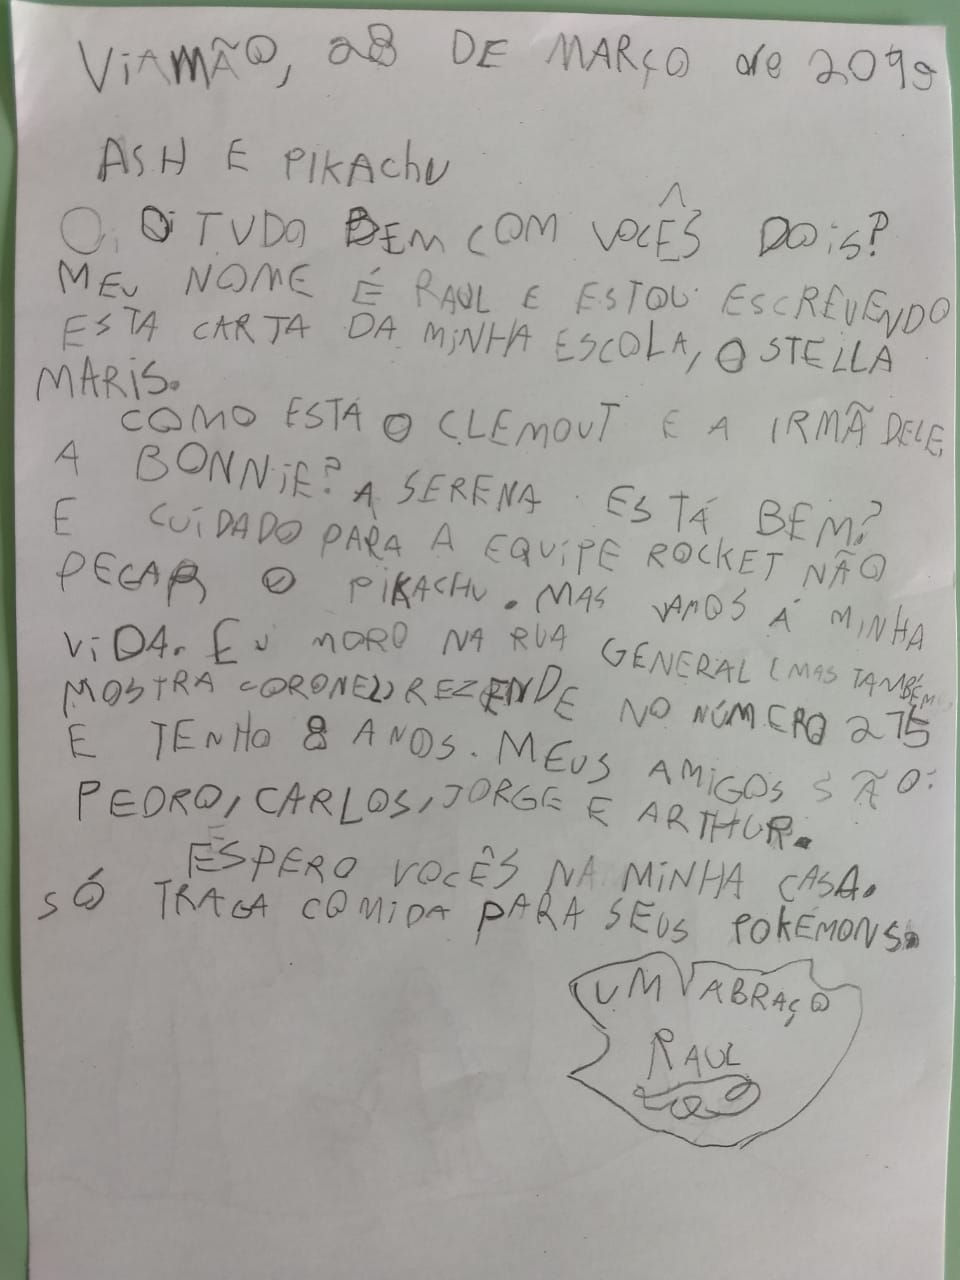 VIAMÃO, 28 DE MARÇO de 2019
ASH E PIKACHU
Oi TUDO BEM COM VOCÊS DOIS?
MEU NOME É RAUL E ESTOU ESCREVENDO
ESTA CARTA DA MINHA ESCOLA, O STELLA
MARIS.
COMO ESTÁ O CLEMOUT E A IRMÃ DELE,
A BONNIE? A SERENA ESTÁ BEM?
E CUIDADO PARA A EQUIPE ROCKET NÃO
PEGAR O PIKACHU. MAS VAMOS Á MINHA
VIDA. EU MORO NA RUA GENERAL (MAS TAMBÉM
MOSTRA CORONEL) REZENDE NO NÚMERO 275
E TENHO 8 ANOS. MEUS AMIGOS SÃO:
PEDRO, CARLOS, JORGE E ARTHUR.
ESPERO VOCÊS NA MINHA CASA.
SÓ TRAGA COMIDA PARA SEUS POKÉMONS.
UM ABRAÇO
RAUL